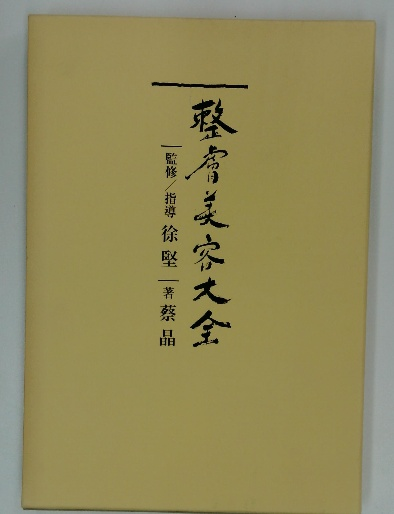 整膚美容大全
監修／指導 徐堅
著 蔡晶